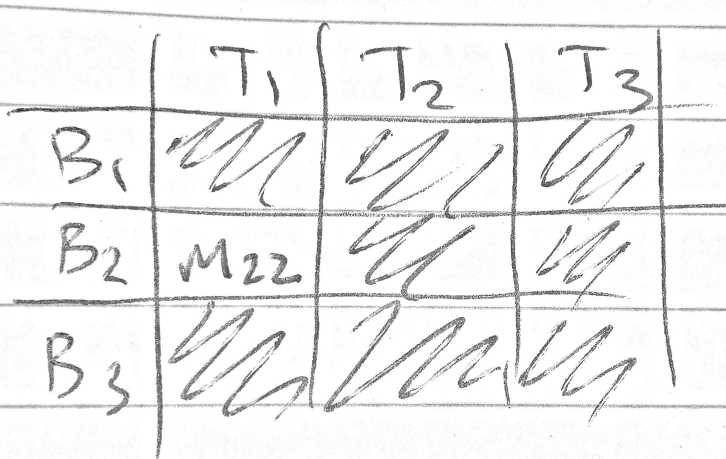 T1 T2 T3
B1
B2 M22
B3